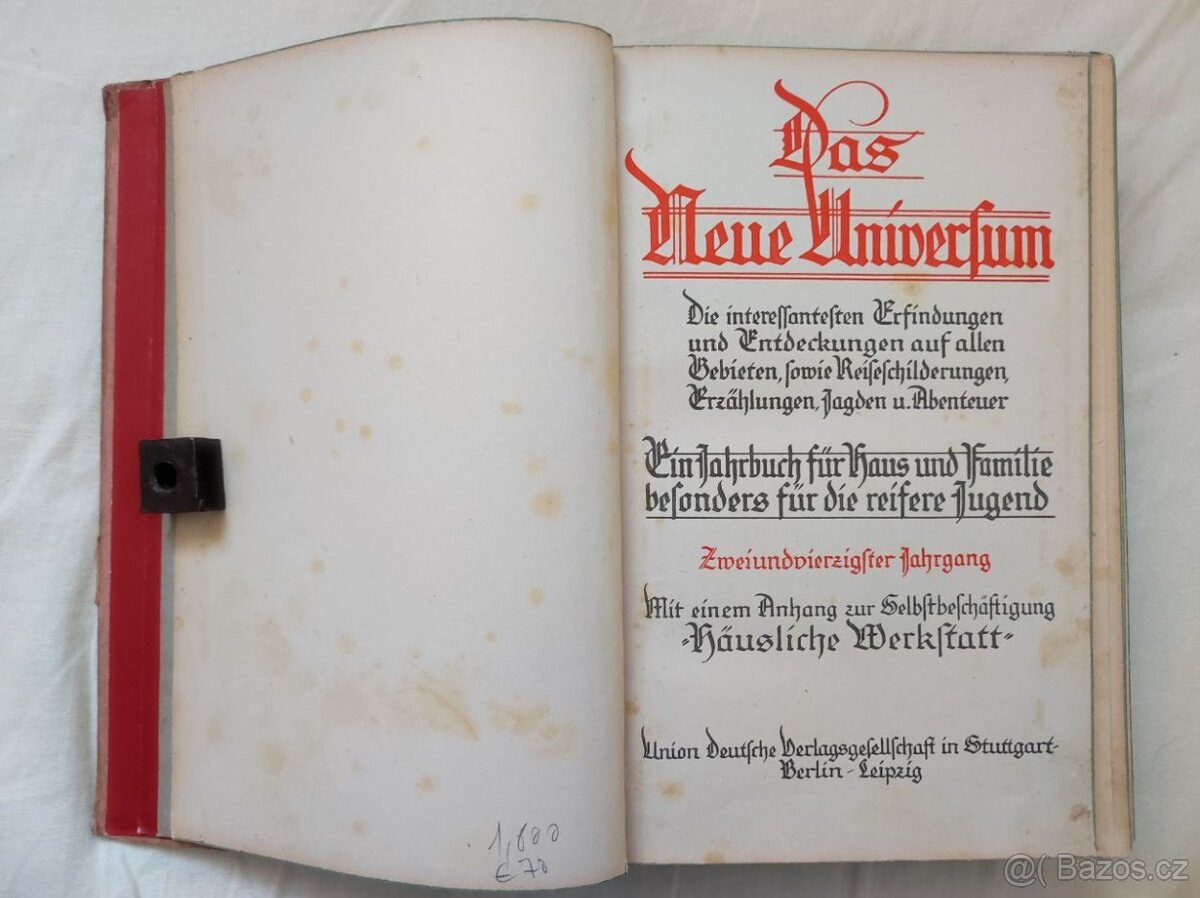 1,600
€70
Das
Neue Universum
Die interessantesten Erfindungen
und Entdeckungen auf allen
Gebieten, sowie Reiseschilderungen,
Erzählungen, Jagden u. Abenteuer
Ein Jahrbuch für Haus und Familie
besonders für die reifere Jugend
Zweiundvierzigster Jahrgang
Mit einem Anhang zur Selbstbeschäftigung
-Häusliche Werkstatt-
Union Deutsche Verlagsgesellschaft in Stuttgart-
Berlin-Leipzig
Bazos.cz